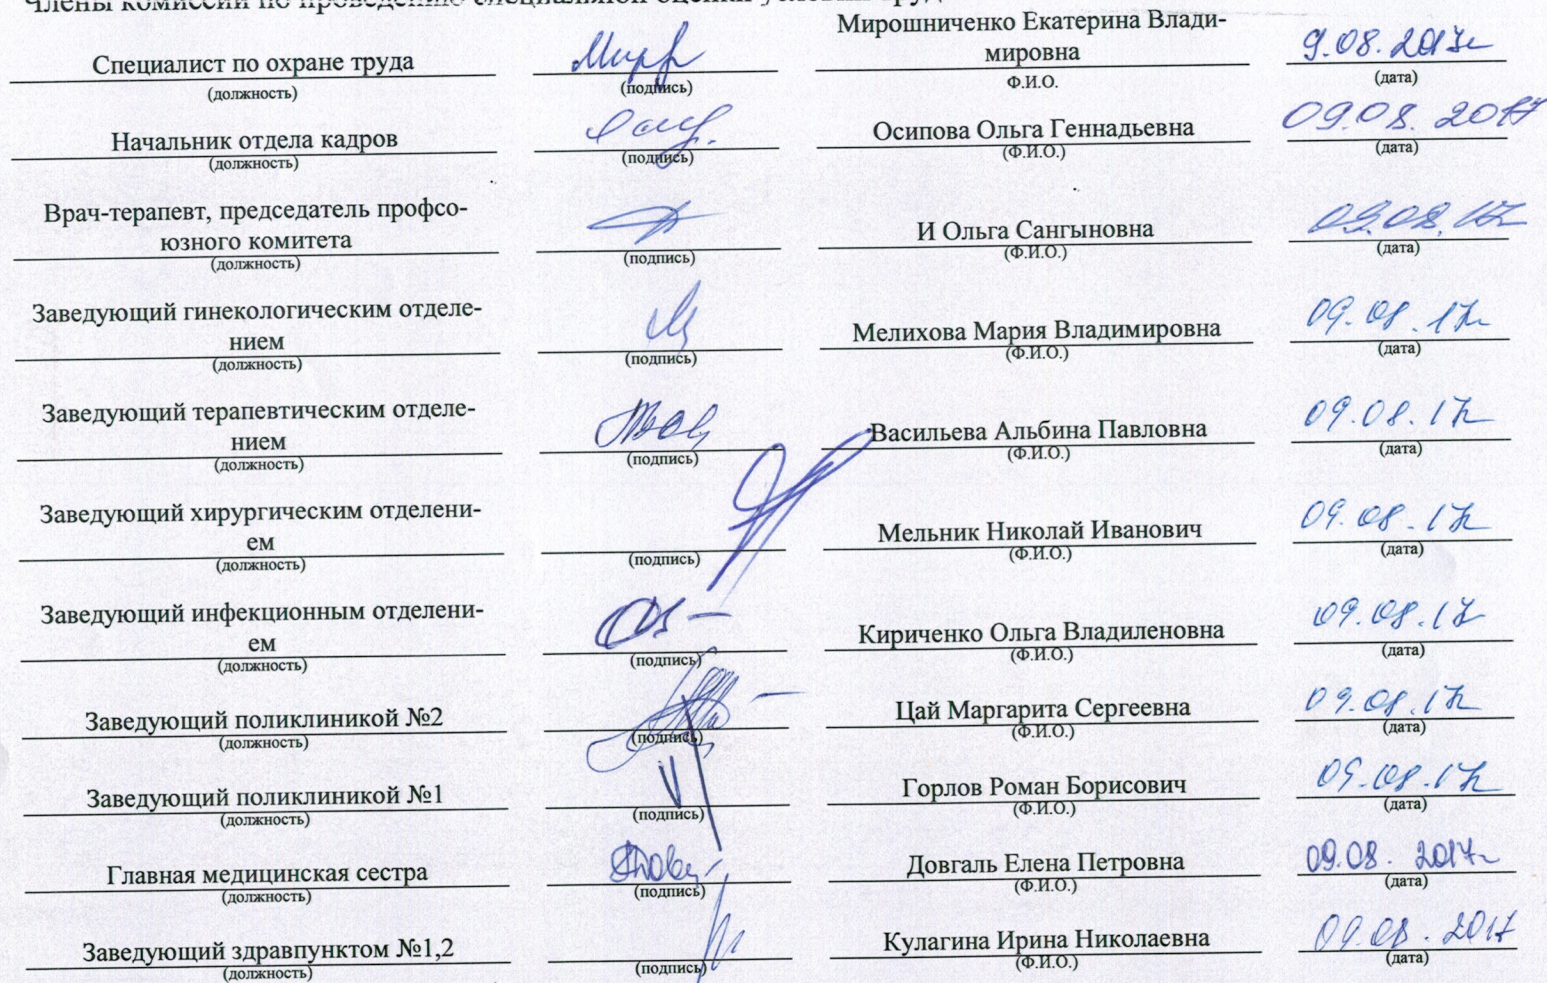 Члены комиссии по проведению специальной оценки условий труда
Мирошниченко Екатерина Влади-
Специалист по охране труда мировна 9.08.2017г
(должность) (подпись) Ф.И.О. (дата)
Начальник отдела кадров Осипова Ольга Геннадьевна 09.08.2017
(должность) (подпись) (Ф.И.О.) (дата)
Врач-терапевт, председатель профсо-
юзного комитета И Ольга Сангыновна 09.08.17г
(должность) (подпись) (Ф.И.О.) (дата)
Заведующий гинекологическим отделе-
нием Мелихова Мария Владимировна 09.08.17г
(должность) (подпись) (Ф.И.О.) (дата)
Заведующий терапевтическим отделе-
нием Васильева Альбина Павловна 09.08.17г
(должность) (подпись) (Ф.И.О.) (дата)
Заведующий хирургическим отделени-
ем Мельник Николай Иванович 09.08.17г
(должность) (подпись) (Ф.И.О.) (дата)
Заведующий инфекционным отделени-
ем Кириченко Ольга Владиленовна 09.08.17г
(должность) (подпись) (Ф.И.О.) (дата)
Заведующий поликлиникой №2 Цай Маргарита Сергеевна 09.08.17г
(должность) (подпись) (Ф.И.О.) (дата)
Заведующий поликлиникой №1 Горлов Роман Борисович 09.08.17г
(должность) (подпись) (Ф.И.О.) (дата)
Главная медицинская сестра Довгаль Елена Петровна 09.08.2017г
(должность) (подпись) (Ф.И.О.) (дата)
Заведующий здравпунктом №1,2 Кулагина Ирина Николаевна 09.08.2017
(должность) (подпись) (Ф.И.О.) (дата)